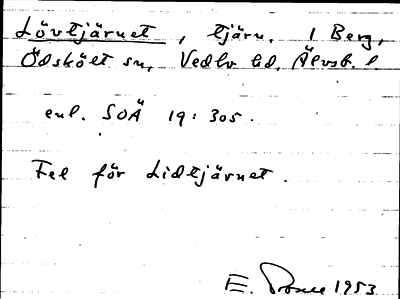 Lövtjärnet, tjärn. i Berg,
Ödskölt sn, Vedbo hd, Älvsb. l.
enl. SOÄ 19:305.
Fel för Lidtjärnet.
E. 1953